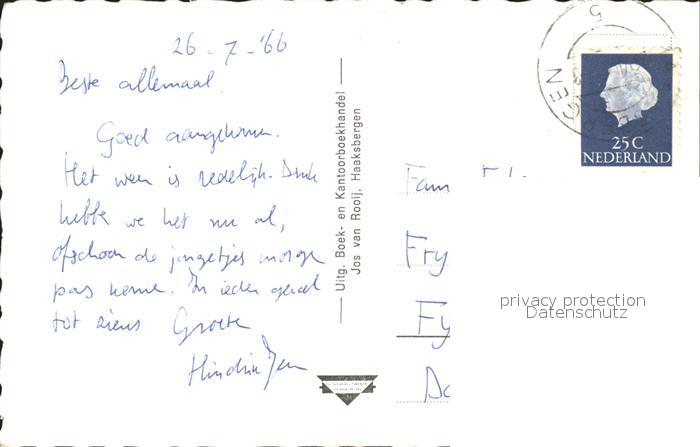 26-7-'66
Beste allemaal.
Goed aangekomen.
Het weer is redelijk. Druk
hebbe we het nu al,
ofschoon de jongetjes morge
pas kome. In ieder geval
tot ziens Groete
Uitg. Boek- en Kantoorboekhandel
Jos van Rooij, Haaksbergen
GEN
5
25C
NEDERLAND
Fam
Fry
Fy
privacy protection
Datenschutz